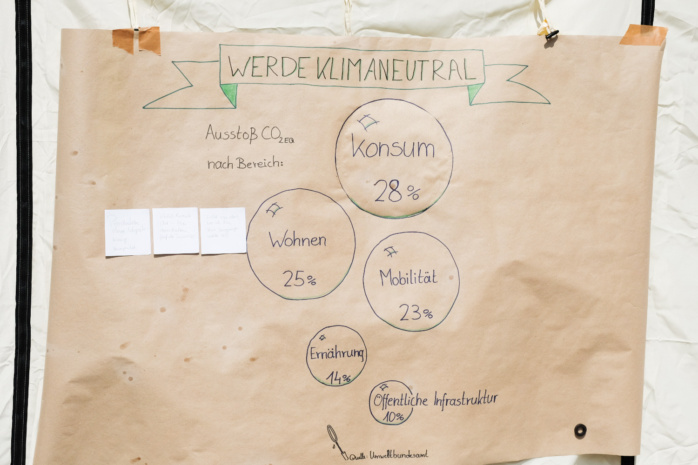 WERDE KLIMANEUTRAL
Ausstoß CO2EQ
nach Bereich:
Konsum
28%
Wohnen
25%
Mobilität
23%
Ernährung
14%
Öffentliche Infrastruktur
10%
Quelle: Umweltbundesamt